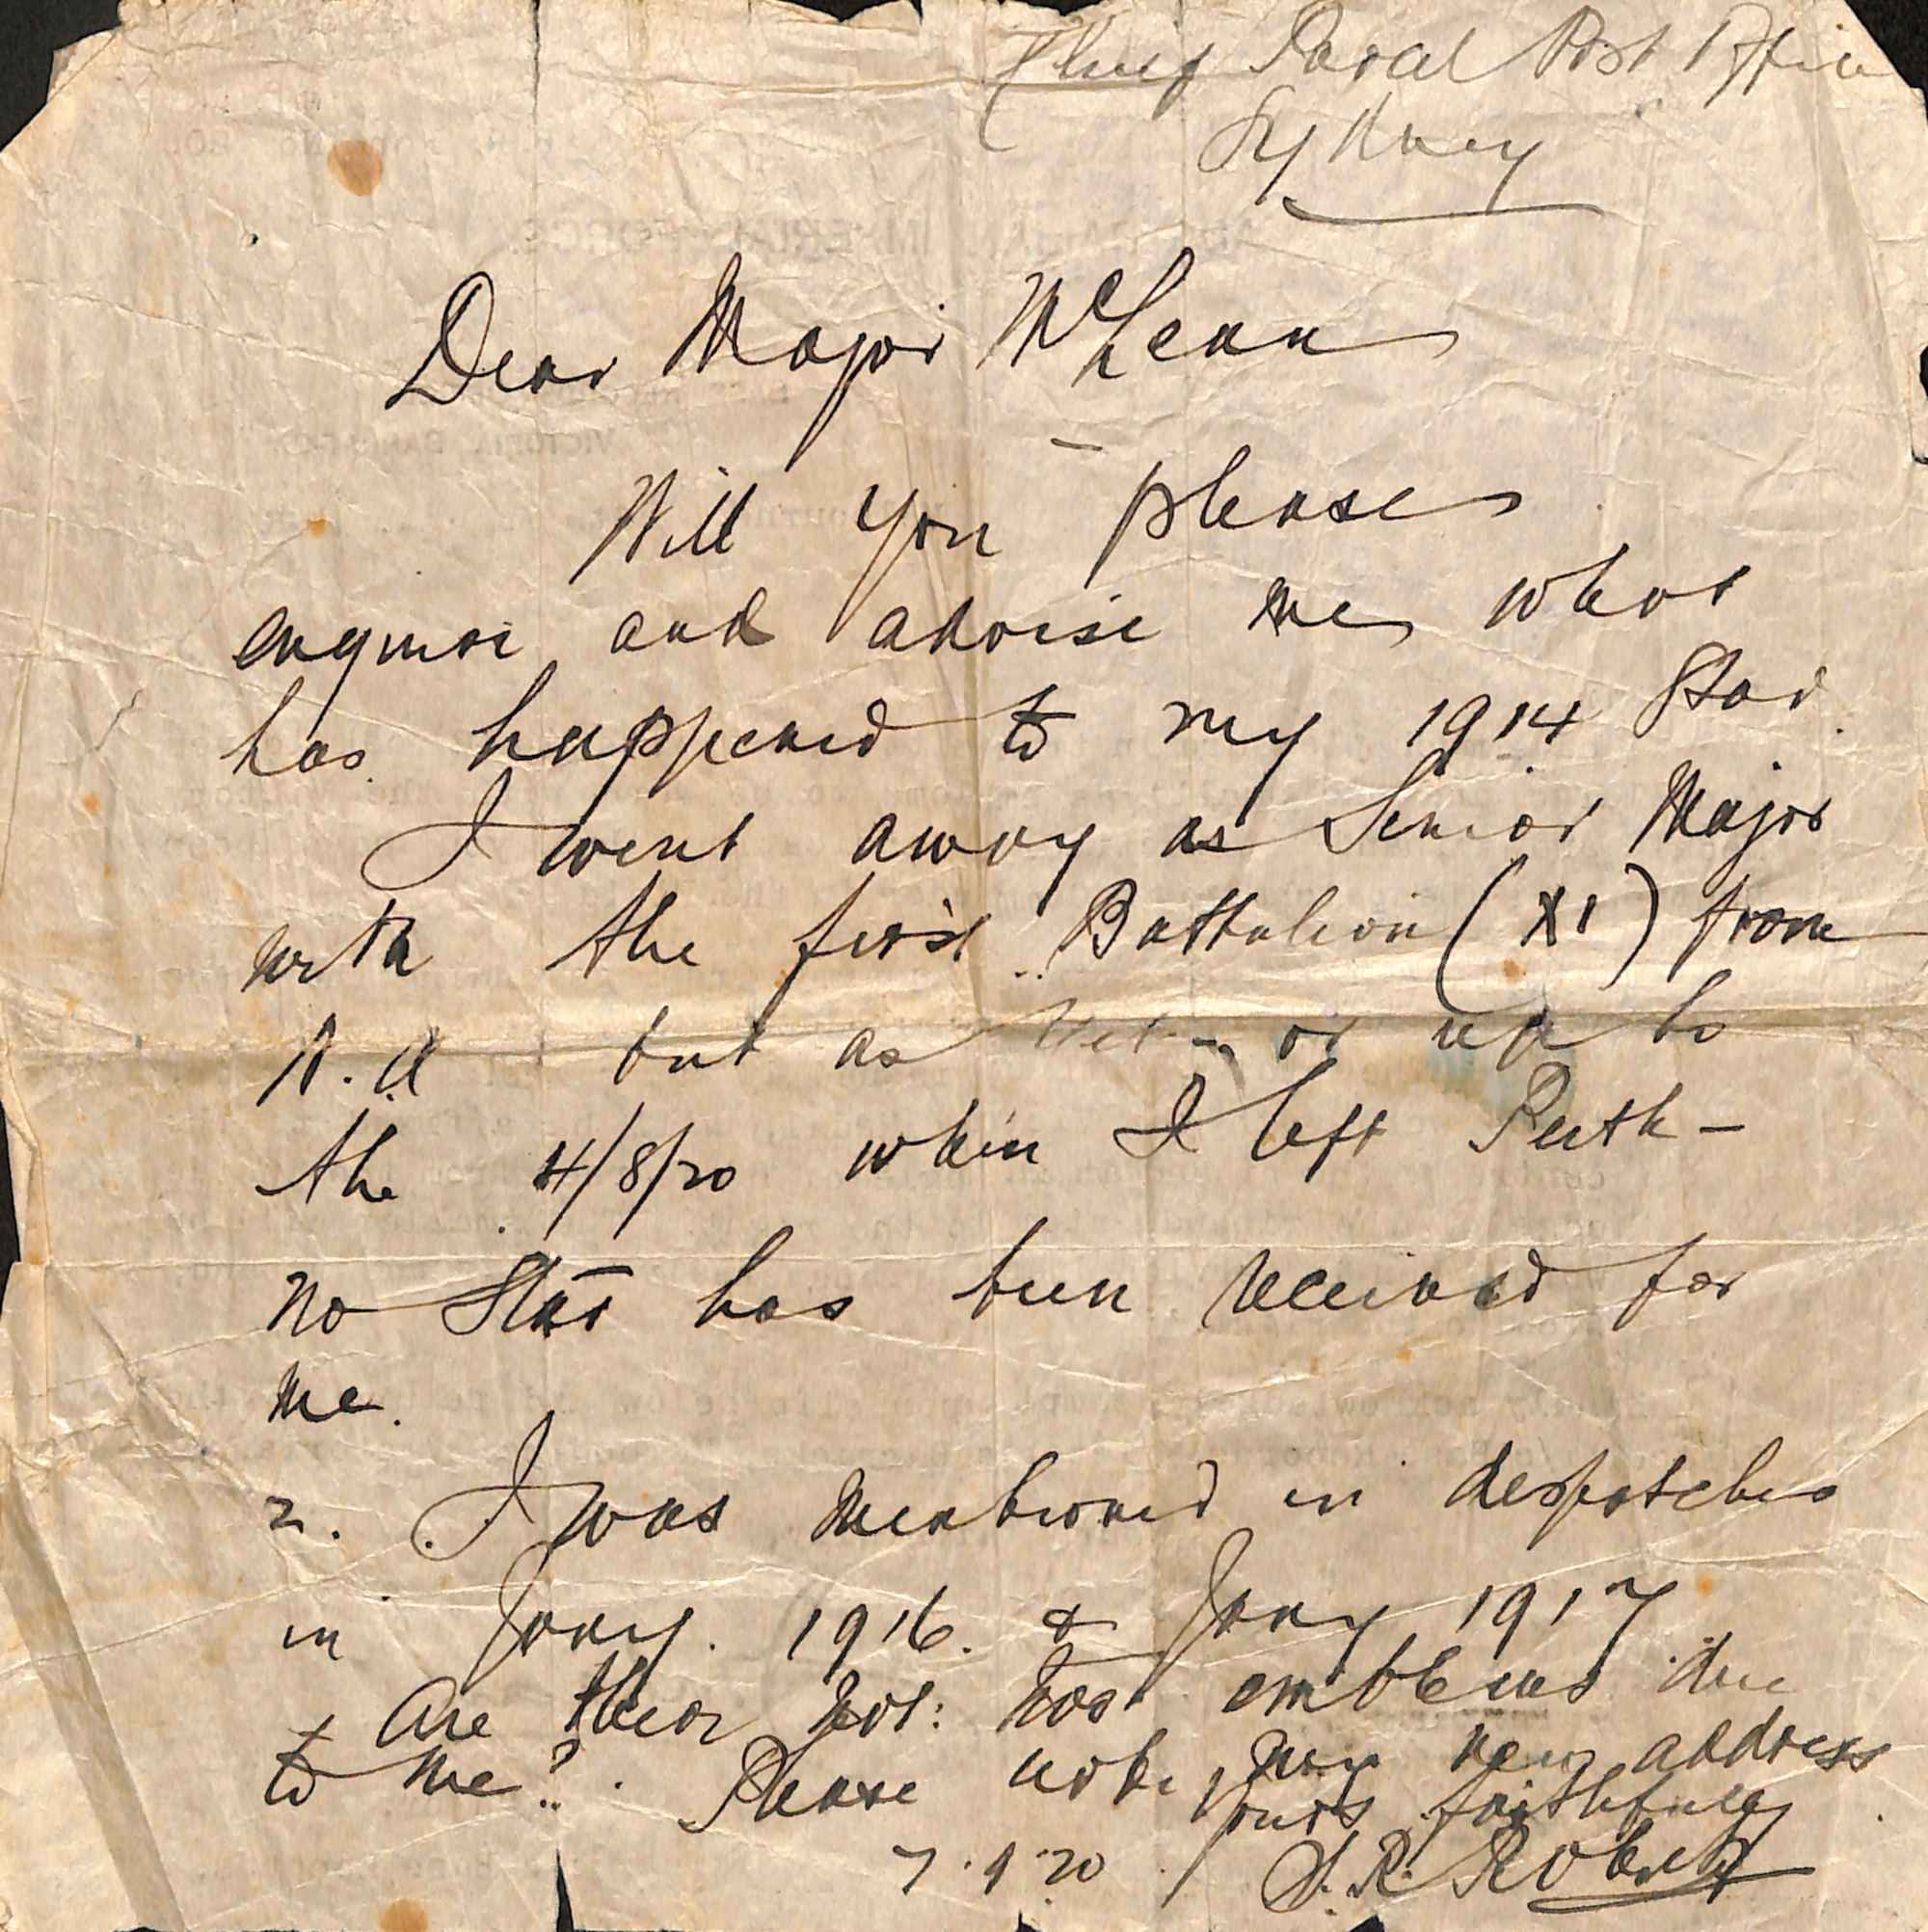 Chief Parcel Post Office
Sydney
Dear Major McLean
Will you please
enquire and advise me what
has happened to my 1914 Star.
I went away as Senior Major
with the first Battalion (XI) from
W.A but as yet - or up to
the 4/8/20 when I left Perth -
no Star has been received for
me.
2. I was mentioned in despatches
in Jany. 1916. & Jany 1917
Are there not: two emblems due
to me? Please note my new address
Yours faithfully
7.9.20 S. R. Roberts